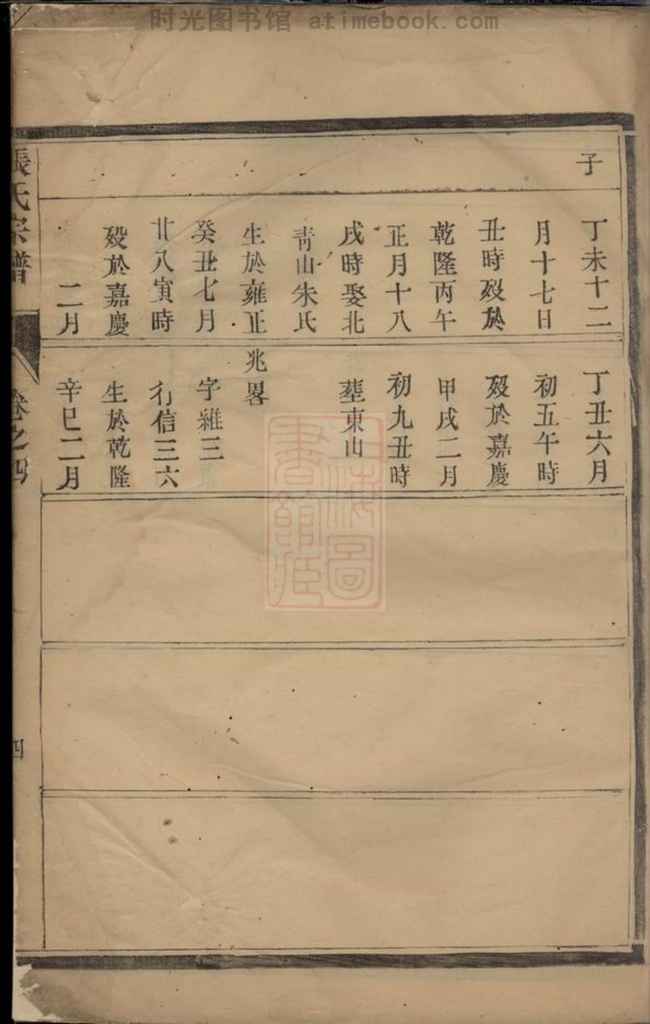 时光图书馆 atimebook.com
子
丁未十二
月十七日
丑時歿於
乾隆丙午
正月十八
戌時娶北
靑山朱氏
生於雍正
癸丑七月
廿八寅時
歿於嘉慶
二月
丁丑六月
初五午時
歿於嘉慶
甲戌二月
初九丑時
塟東山
兆畧
字雒三
行信三六
生於乾隆
辛巳二月
張氏宗譜
卷之四
四
上海圖
書館藏